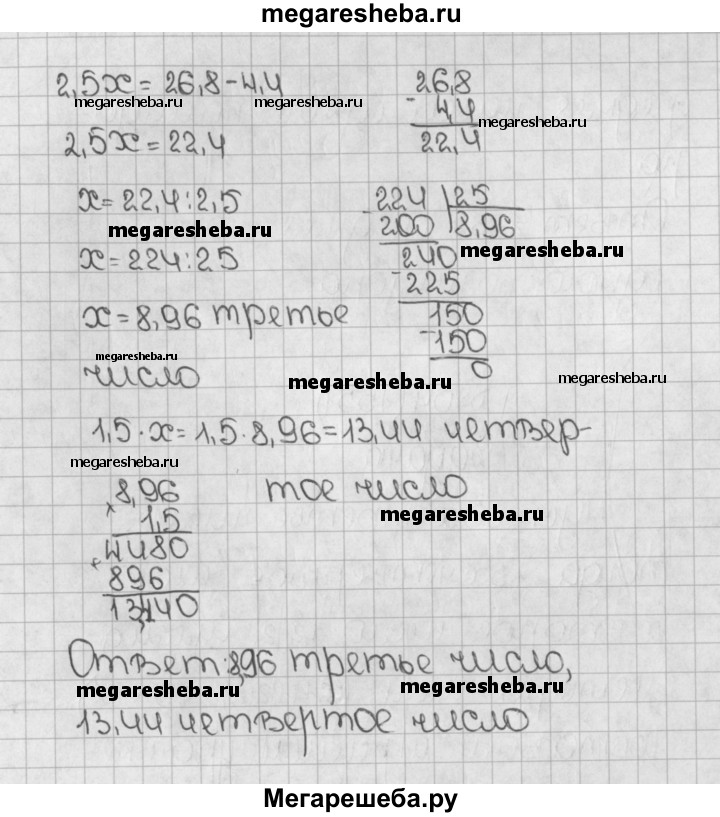 megaresheba.ru
2,5x = 26,8 - 4,4
26,8
- 4,4
22,4
megaresheba.ru megaresheba.ru megaresheba.ru
2,5x = 22,4
x = 22,4 : 2,5
megaresheba.ru
x = 224 : 25
224 | 25
- 200 | 8,96
240
- 225
150
- 150
0
megaresheba.ru
x = 8,96 третье
megaresheba.ru
число
megaresheba.ru megaresheba.ru
1,5 · x = 1,5 · 8,96 = 13,44 четвер-
megaresheba.ru
тое число
megaresheba.ru
8,96
× 1,5
+ 4480
896
13,440
Ответ: 8,96 третье число,
megaresheba.ru megaresheba.ru
13,44 четвертое число
Мегарешеба.ру